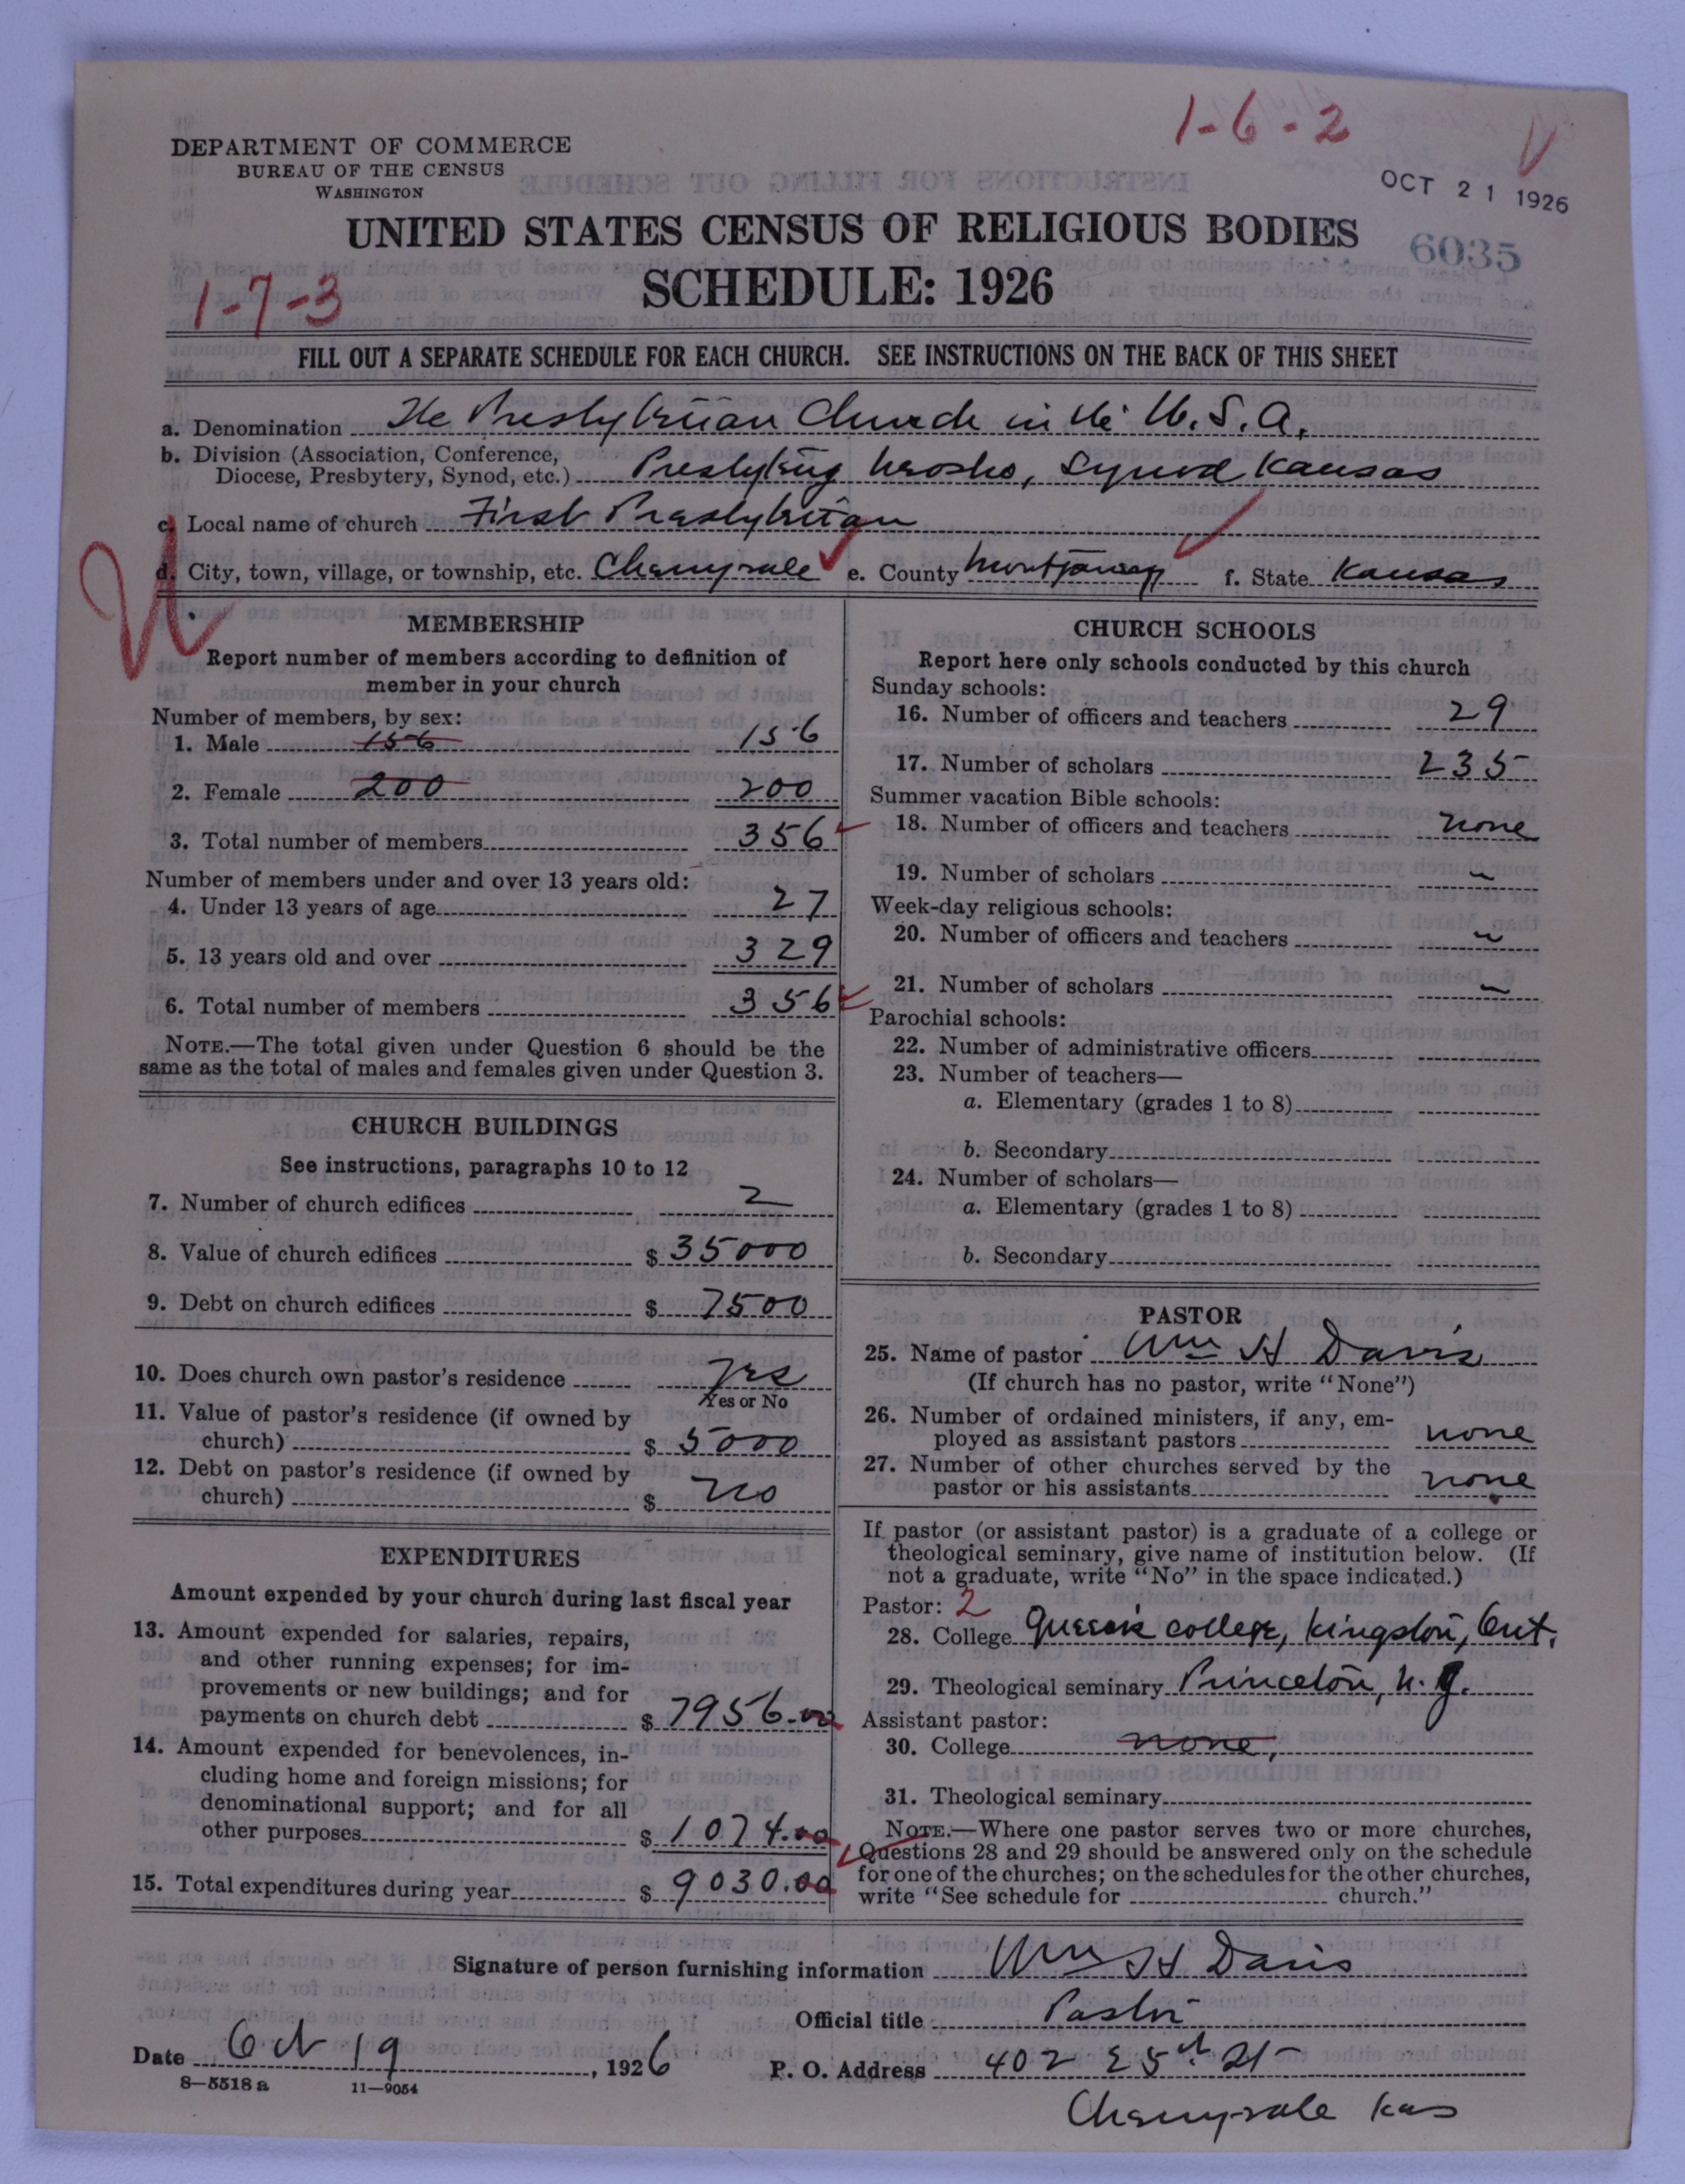 1-6-2
DEPARTMENT OF COMMERCE
BUREAU OF THE CENSUS
WASHINGTON
OCT 21 1926
UNITED STATES CENSUS OF RELIGIOUS BODIES
6035
SCHEDULE: 1926
1-7-3
FILL OUT A SEPARATE SCHEDULE FOR EACH CHURCH. SEE INSTRUCTIONS ON THE BACK OF THIS SHEET
a. Denomination The Presbyterian Church in the U.S.A.
b. Division (Association, Conference,
Diocese, Presbytery, Synod, etc.) Presbytery Neosho, Synod Kansas
c. Local name of church First Presbyterian
d. City, town, village, or township, etc. Cherryvale e. County Montgomery f. State Kansas
MEMBERSHIP
Report number of members according to definition of
member in your church
Number of members, by sex:
1. Male 156 156
2. Female 200 200
3. Total number of members 356
Number of members under and over 13 years old:
4. Under 13 years of age 27
5. 13 years old and over 329
6. Total number of members 356
NOTE.—The total given under Question 6 should be the
same as the total of males and females given under Question 3.
CHURCH BUILDINGS
See instructions, paragraphs 10 to 12
7. Number of church edifices 2
8. Value of church edifices $ 35000
9. Debt on church edifices $ 7500
10. Does church own pastor's residence Yes
Yes or No
11. Value of pastor's residence (if owned by
church) $ 5000
12. Debt on pastor's residence (if owned by
church) $ no
EXPENDITURES
Amount expended by your church during last fiscal year
13. Amount expended for salaries, repairs,
and other running expenses; for im-
provements or new buildings; and for
payments on church debt $ 7956.00
14. Amount expended for benevolences, in-
cluding home and foreign missions; for
denominational support; and for all
other purposes $ 1074.00
15. Total expenditures during year $ 9030.00
CHURCH SCHOOLS
Report here only schools conducted by this church
Sunday schools:
16. Number of officers and teachers 29
17. Number of scholars 235
Summer vacation Bible schools:
18. Number of officers and teachers none
19. Number of scholars "
Week-day religious schools:
20. Number of officers and teachers "
21. Number of scholars "
Parochial schools:
22. Number of administrative officers
23. Number of teachers—
a. Elementary (grades 1 to 8)
b. Secondary
24. Number of scholars—
a. Elementary (grades 1 to 8)
b. Secondary
PASTOR
25. Name of pastor Wm H Davis
(If church has no pastor, write "None")
26. Number of ordained ministers, if any, em-
ployed as assistant pastors none
27. Number of other churches served by the
pastor or his assistants none
If pastor (or assistant pastor) is a graduate of a college or
theological seminary, give name of institution below. (If
not a graduate, write "No" in the space indicated.)
Pastor: 2
28. College Queen's college, Kingston, Ont.
29. Theological seminary Princeton, N.J.
Assistant pastor:
30. College none,
31. Theological seminary
NOTE.—Where one pastor serves two or more churches,
Questions 28 and 29 should be answered only on the schedule
for one of the churches; on the schedules for the other churches,
write "See schedule for church."
Signature of person furnishing information Wm H Davis
Official title Pastor
Date Oct 19, 1926 P. O. Address 402 E 5th St
8—5518 a 11—9054
Cherryvale Kas